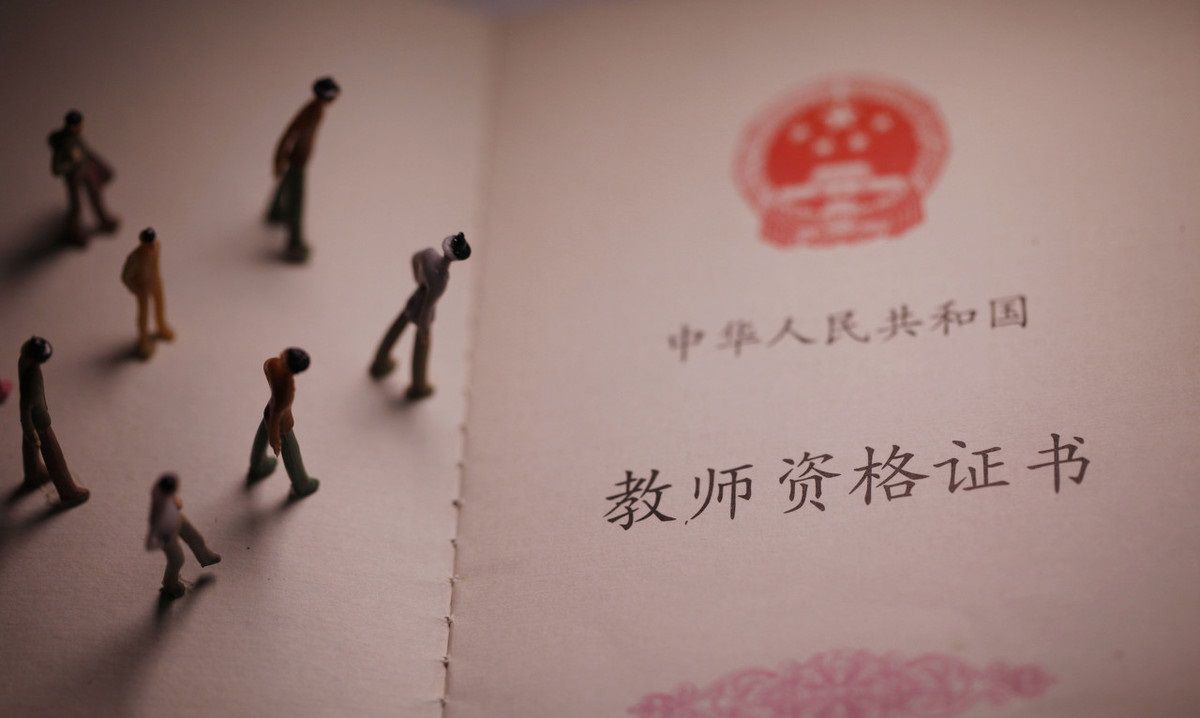 中华人民共和国
教师资格证书